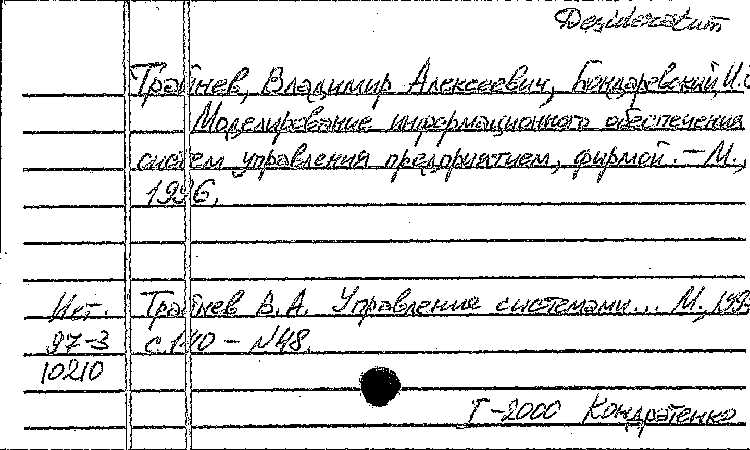 Desideratum
Трайнев, Владимир Алексеевич, Бондаровский, И.С
Моделирование информационного обеспечения
систем управления предприятием, фирмой. – М.,
1996.
Ист. Трайнев В.А. Управление системами... М., 199
97-3 с.140 – N48.
10210
I-2000 Кондратенко